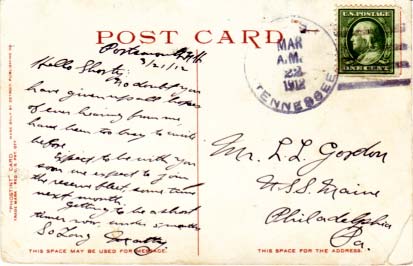 POST CARD
U.S. POSTAGE
ONE CENT
MAR
A.M.
22
1912
TENNESSEE
Portsmouth N.H.
3/21/12
Hello Shorty,
No doubt you
have given up all hopes
of ever hearing from me
have been too lazy to write
before.
Expect to be with you
soon we expect to join
the reserve fleet, some time
next month.
Getting to be a short
timer now under 5 months
So Long
Mr. L. L. Gordon
U.S.S. Maine
Philadelphia
Pa.
"PHOSTINT" CARD
MADE ONLY BY DETROIT PUBLISHING CO.
THIS SPACE MAY BE USED FOR MESSAGE.
THIS SPACE FOR THE ADDRESS.